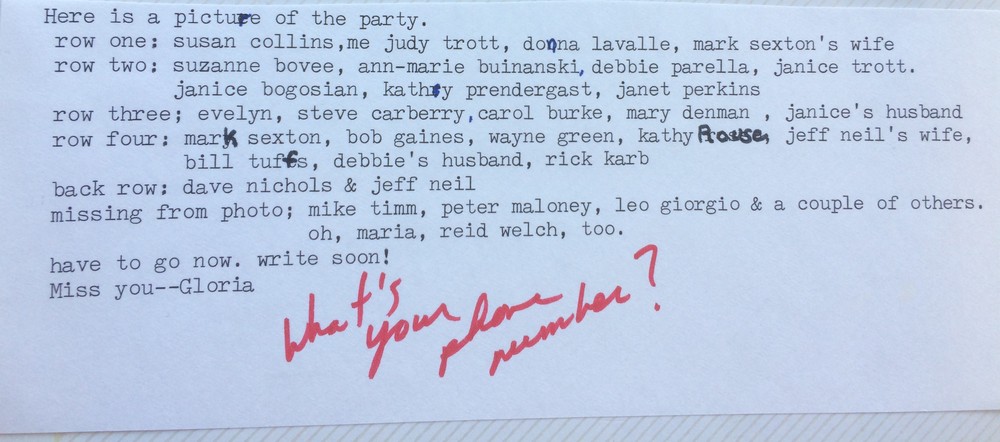 Here is a picture of the party.
row one: susan collins,me judy trott, donna lavalle, mark sexton's wife
row two: suzanne bovee, ann-marie buinanski, debbie parella, janice trott.
janice bogosian, kathry prendergast, janet perkins
row three; evelyn, steve carberry,carol burke, mary denman , janice's husband
row four: mark sexton, bob gaines, wayne green, kathy Rouse, jeff neil's wife,
bill tuffs, debbie's husband, rick karb
back row: dave nichols & jeff neil
missing from photo; mike timm, peter maloney, leo giorgio & a couple of others.
oh, maria, reid welch, too.
have to go now. write soon!
Miss you--Gloria
What's
your phone
number?